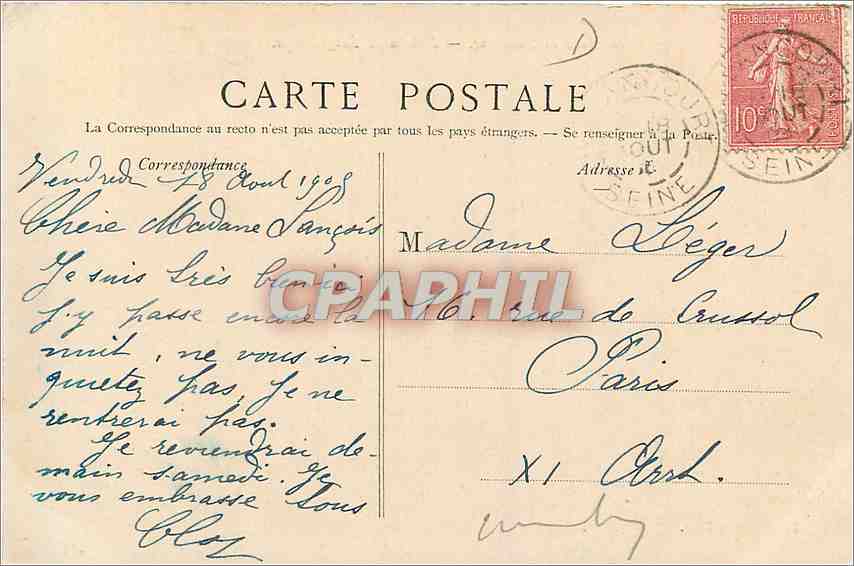 RÉPUBLIQUE FRANÇAISE
POSTES
10c
OUT
SEINE
18
AOUT
SEINE
D
CARTE POSTALE
La Correspondance au recto n'est pas acceptée par tous les pays étrangers. — Se renseigner à la Poste.
Correspondance
Adresse
Vendredi 18 Aout 1905
Chère Madame Lançois
Je suis très bien ici
j'y passe encore la
nuit, ne vous in-
quietez pas, Je ne
rentrerai pas.
Je reviendrai de-
main samedi. Je
vous embrasse tous
Madame Léger
16. rue de Crussol
Paris
XI Arrt.
CPAPHIL